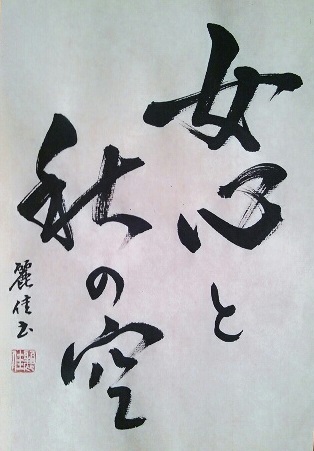 女心と
秋の空
麗佳书